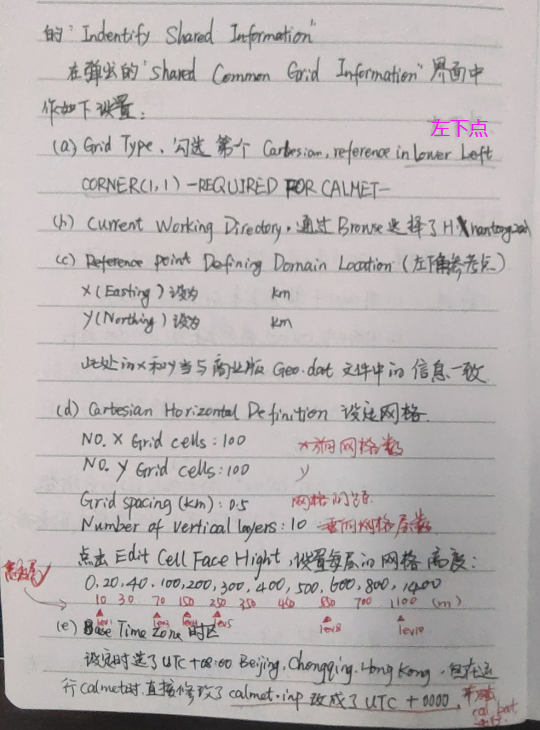 的 "Indentify Shared Information"
在弹出的 "Shared Common Grid Information" 界面中
作如下设置:
左下点
(a) Grid Type, 勾选第一个 Cartesian, reference in Lower Left
CORNER(1,1) -REQUIRED FOR CALMET-
(b) Current Working Directory, 通过 Browse 选择了 H:\nantong
(c) Reference point Defining Domain Location (左下角参考点)
X(Easting) 设为 km
Y(Northing) 设为 km
此处的x和y当与商业版 Geo.dat 文件中的信息一致
(d) Cartesian Horizontal Definition 设定网格.
NO. X Grid cells: 100 x方向网格数
NO. Y Grid cells: 100 y
Grid spacing (km): 0.5 网格间距
Number of vertical layers: 10 垂向网格层数
点击 Edit Cell Face Hight, 设置每层的网格高度:
0, 20, 40, 100, 200, 300, 400, 500, 600, 800, 1400
10 30 70 150 250 350 450 550 700 1100 (m)
lev1 lev3 lev4 lev5 lev8 lev10
(e) Base Time Zone 时区
设定时选了 UTC +08:00 Beijing, Chongqing, Hong Kong, 但在运
行calmet时,直接修改了 calmet.inp 改成了 UTC +0000,